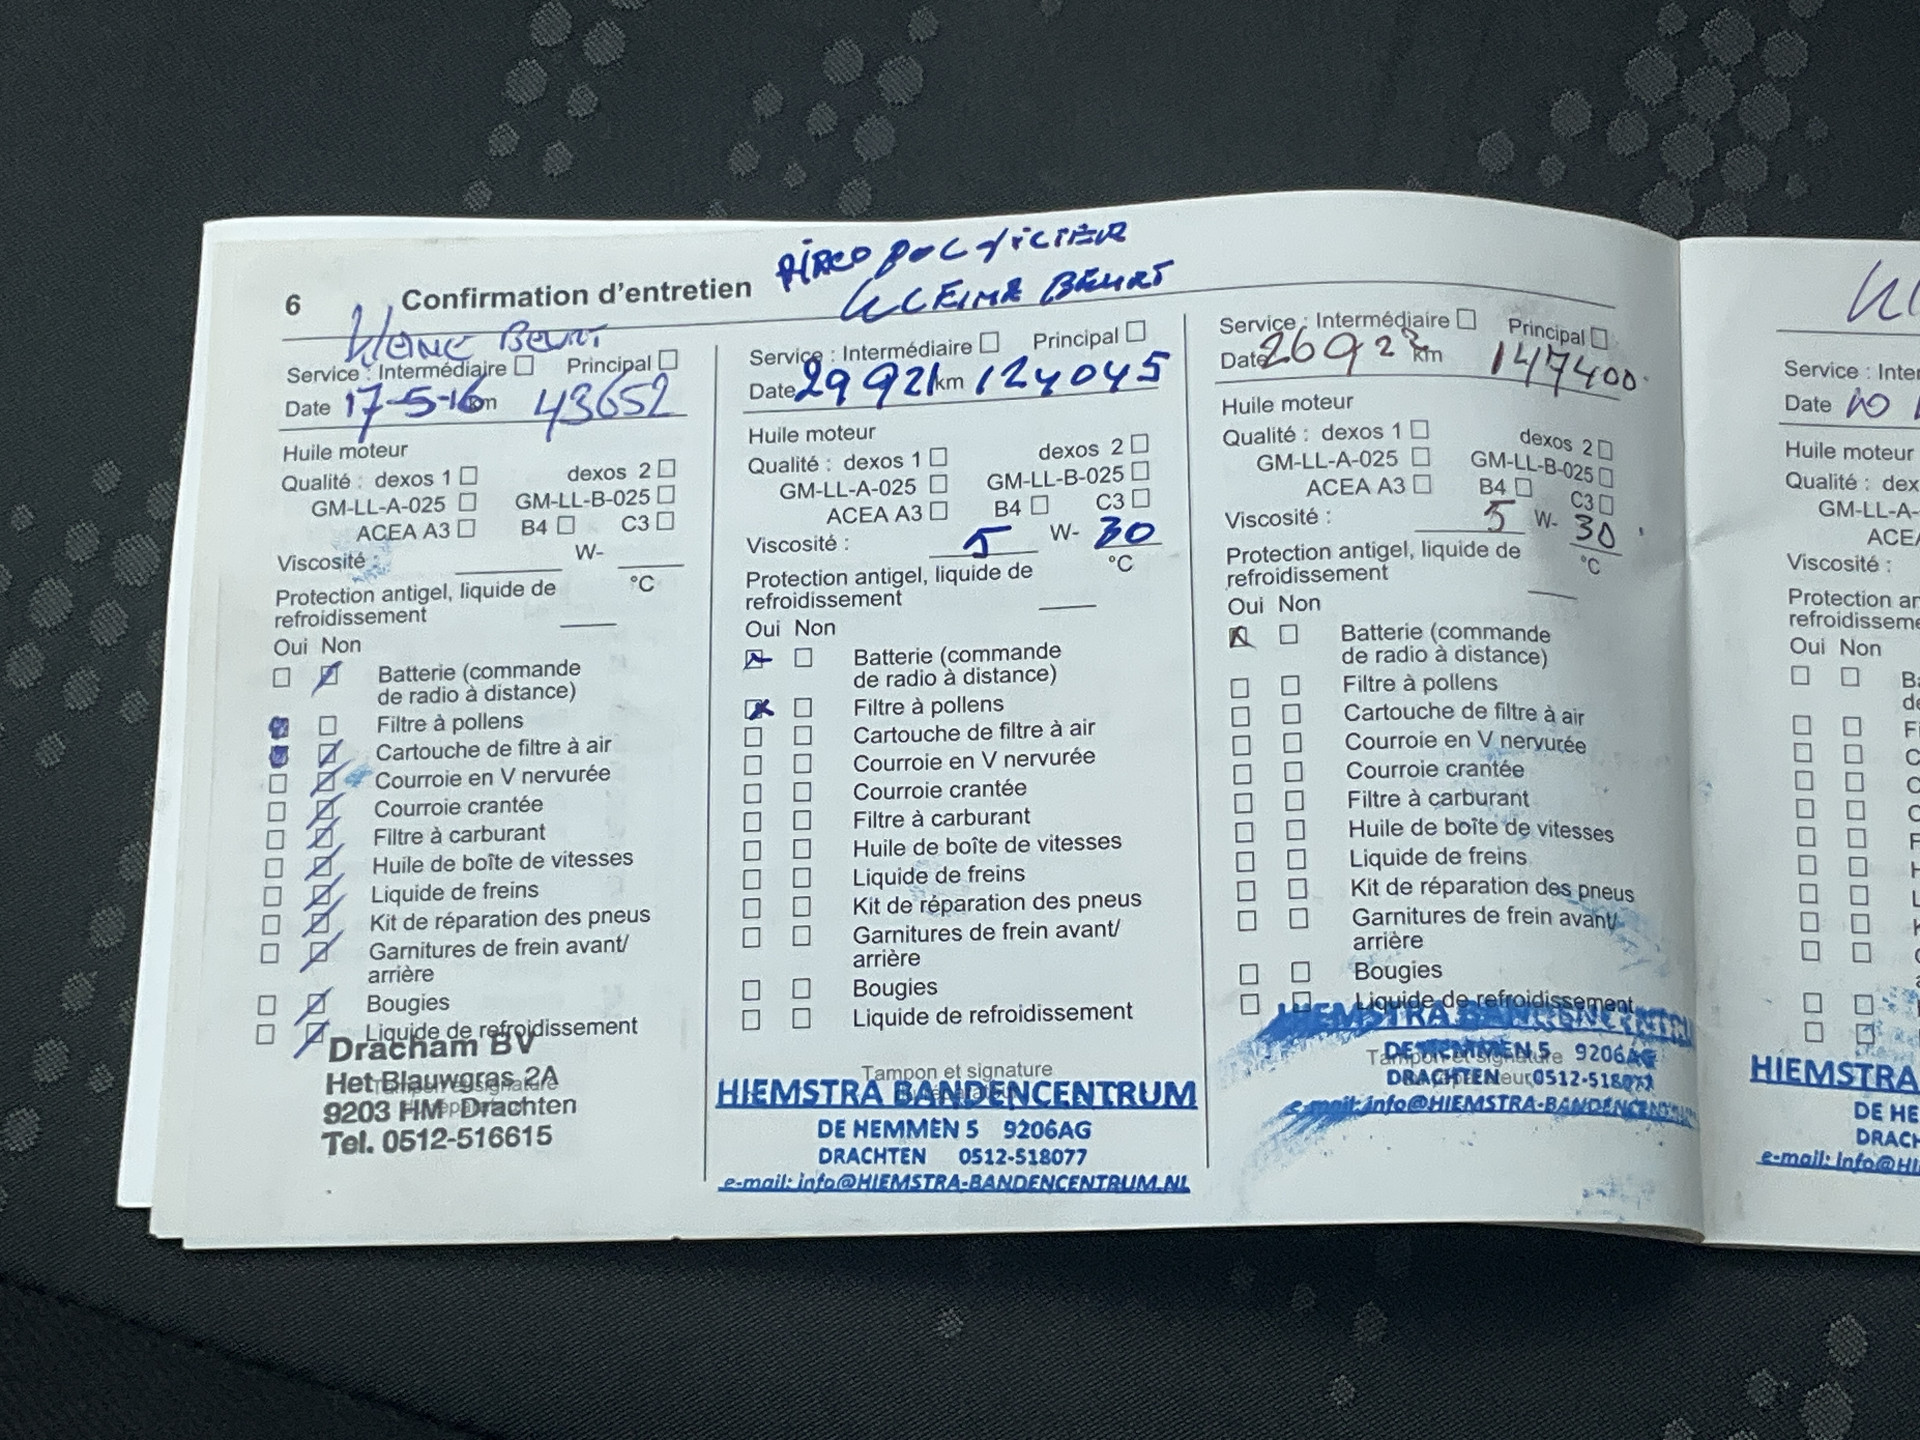 6 Confirmation d'entretien
KLEINE BEURT
Kleine Beurt
Service : Intermédiaire ☐ Principal ☐
Date 17-5-16 km 43652
Huile moteur
Qualité : dexos 1 ☐ dexos 2 ☐
GM-LL-A-025 ☐ GM-LL-B-025 ☐
ACEA A3 ☐ B4 ☐ C3 ☐
Viscosité : W-
Protection antigel, liquide de °C
refroidissement
Oui Non
Batterie (commande
de radio à distance)
Filtre à pollens
Cartouche de filtre à air
Courroie en V nervurée
Courroie crantée
Filtre à carburant
Huile de boîte de vitesses
Liquide de freins
Kit de réparation des pneus
Garnitures de frein avant/
arrière
Bougies
Liquide de refroidissement
Dracham BV
Het Blauwgras 2A
9203 HM Drachten
Tel. 0512-516615
Service : Intermédiaire ☐ Principal ☐
Date 29 9 21 km 124045
Huile moteur
Qualité : dexos 1 ☐ dexos 2 ☐
GM-LL-A-025 ☐ GM-LL-B-025 ☐
ACEA A3 ☐ B4 ☐ C3 ☐
Viscosité : 5 W- 30
Protection antigel, liquide de °C
refroidissement
Oui Non
Batterie (commande
de radio à distance)
Filtre à pollens
Cartouche de filtre à air
Courroie en V nervurée
Courroie crantée
Filtre à carburant
Huile de boîte de vitesses
Liquide de freins
Kit de réparation des pneus
Garnitures de frein avant/
arrière
Bougies
Liquide de refroidissement
Tampon et signature
HIEMSTRA BANDENCENTRUM
DE HEMMEN 5 9206AG
DRACHTEN 0512-518077
e-mail: info@HIEMSTRA-BANDENCENTRUM.NL
Service : Intermédiaire ☐ Principal ☐
Date 26 9 23 km 147400
Huile moteur
Qualité : dexos 1 ☐ dexos 2 ☐
GM-LL-A-025 ☐ GM-LL-B-025 ☐
ACEA A3 ☐ B4 ☐ C3 ☐
Viscosité : 5 W- 30
Protection antigel, liquide de °C
refroidissement
Oui Non
Batterie (commande
de radio à distance)
Filtre à pollens
Cartouche de filtre à air
Courroie en V nervurée
Courroie crantée
Filtre à carburant
Huile de boîte de vitesses
Liquide de freins
Kit de réparation des pneus
Garnitures de frein avant/
arrière
Bougies
Liquide de refroidissement
Tampon et signature
HIEMSTRA BANDENCENTRUM
DE HEMMEN 5 9206AG
DRACHTEN 0512-518077
e-mail: info@HIEMSTRA-BANDENCENTRUM
Service : Inter
Date 10
Huile moteur
Qualité : dex
GM-LL-A-
ACEA
Viscosité :
Protection an
refroidisseme
Oui Non
HIEMSTRA
DE HE
DRACH
e-mail: info@HI